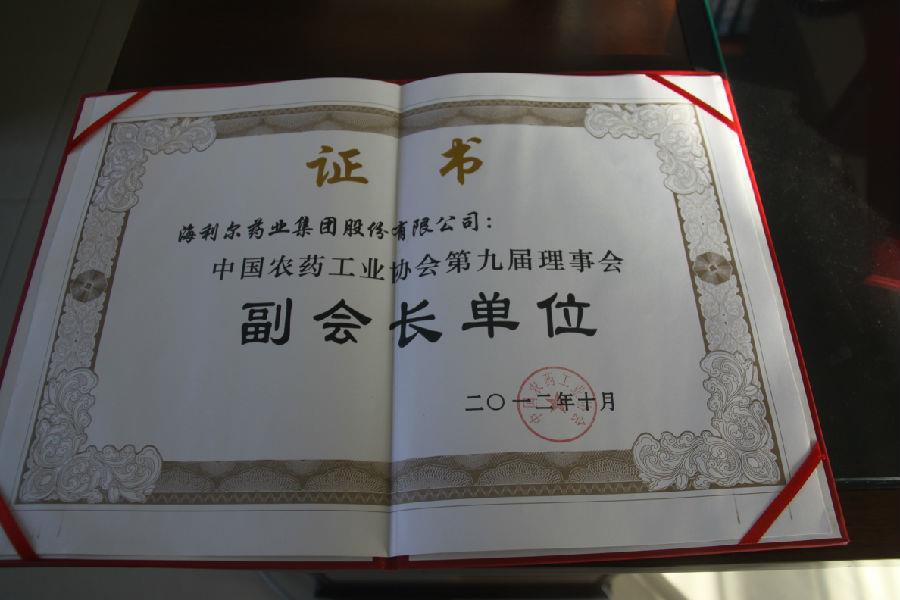 证书
海利尔药业集团股份有限公司：
中国农药工业协会第九届理事会
副会长单位
二〇一二年十月
中国农药工业协会